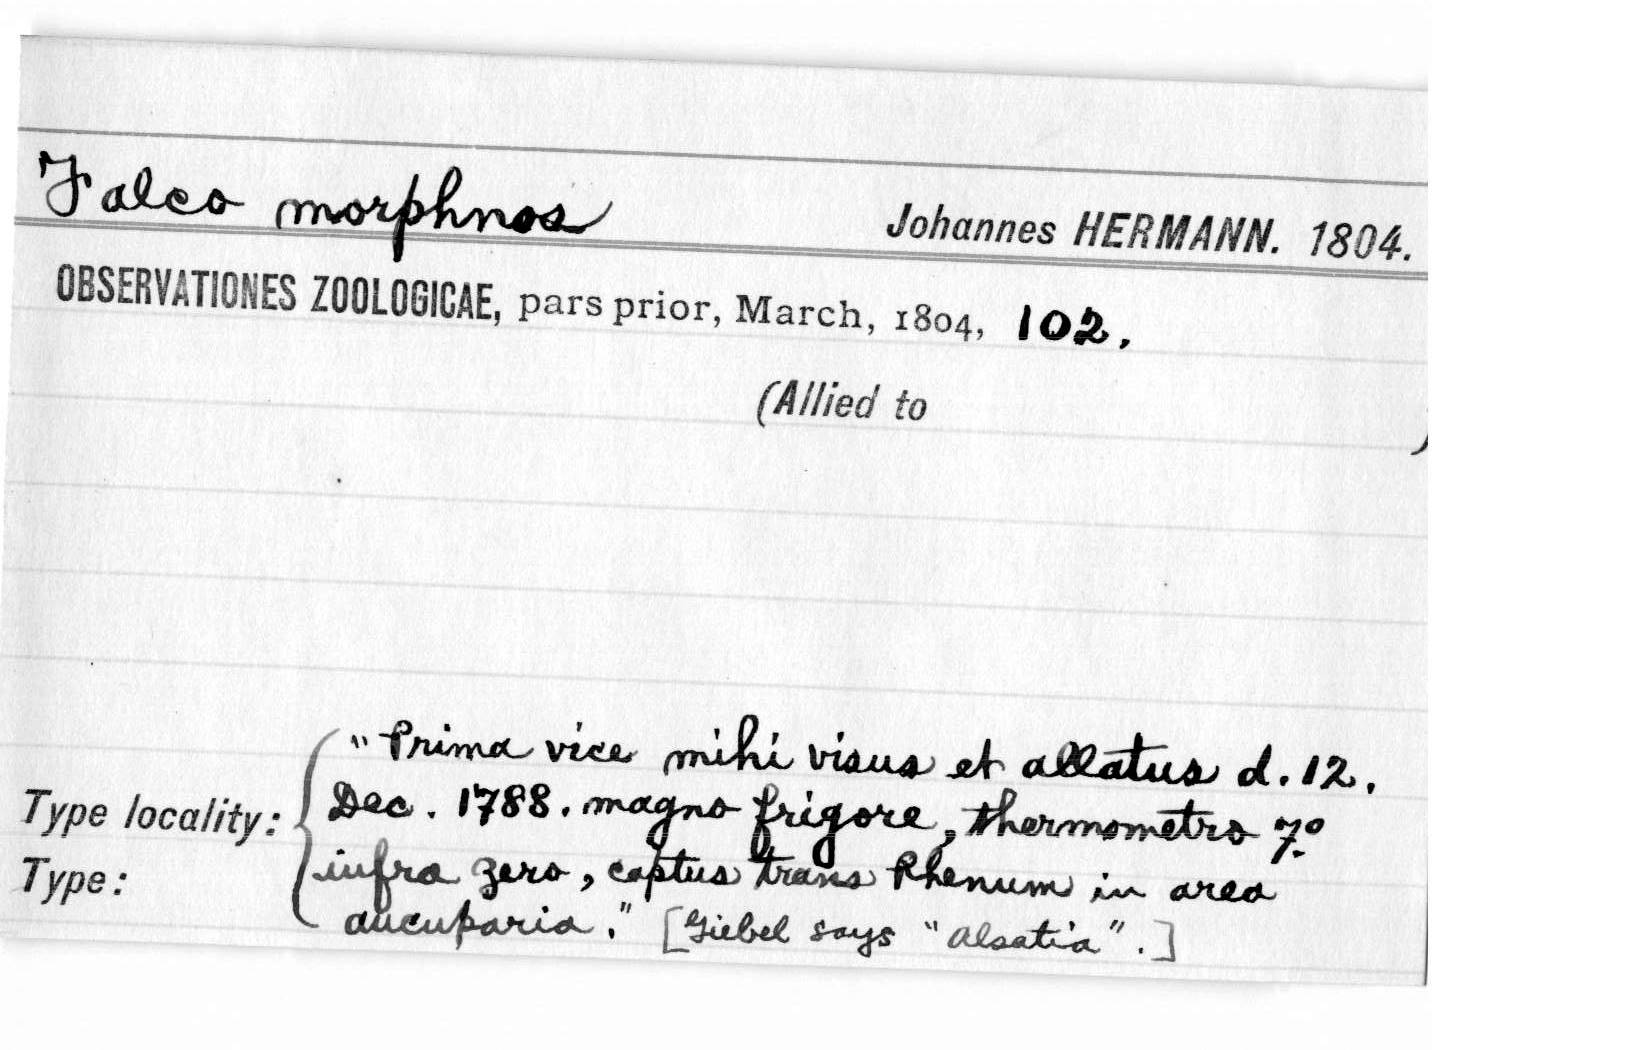 Falco morphnos
Johannes HERMANN. 1804.
OBSERVATIONES ZOOLOGICAE, pars prior, March, 1804, 102.
(Allied to )
"Prima vice mihi visus et allatus d. 12.
Type locality: Dec. 1788. magno frigore, thermometro 7º.
Type: infra zero, captus trans Rhenum in area
aucuparia." [Giebel says "Alsatia".]